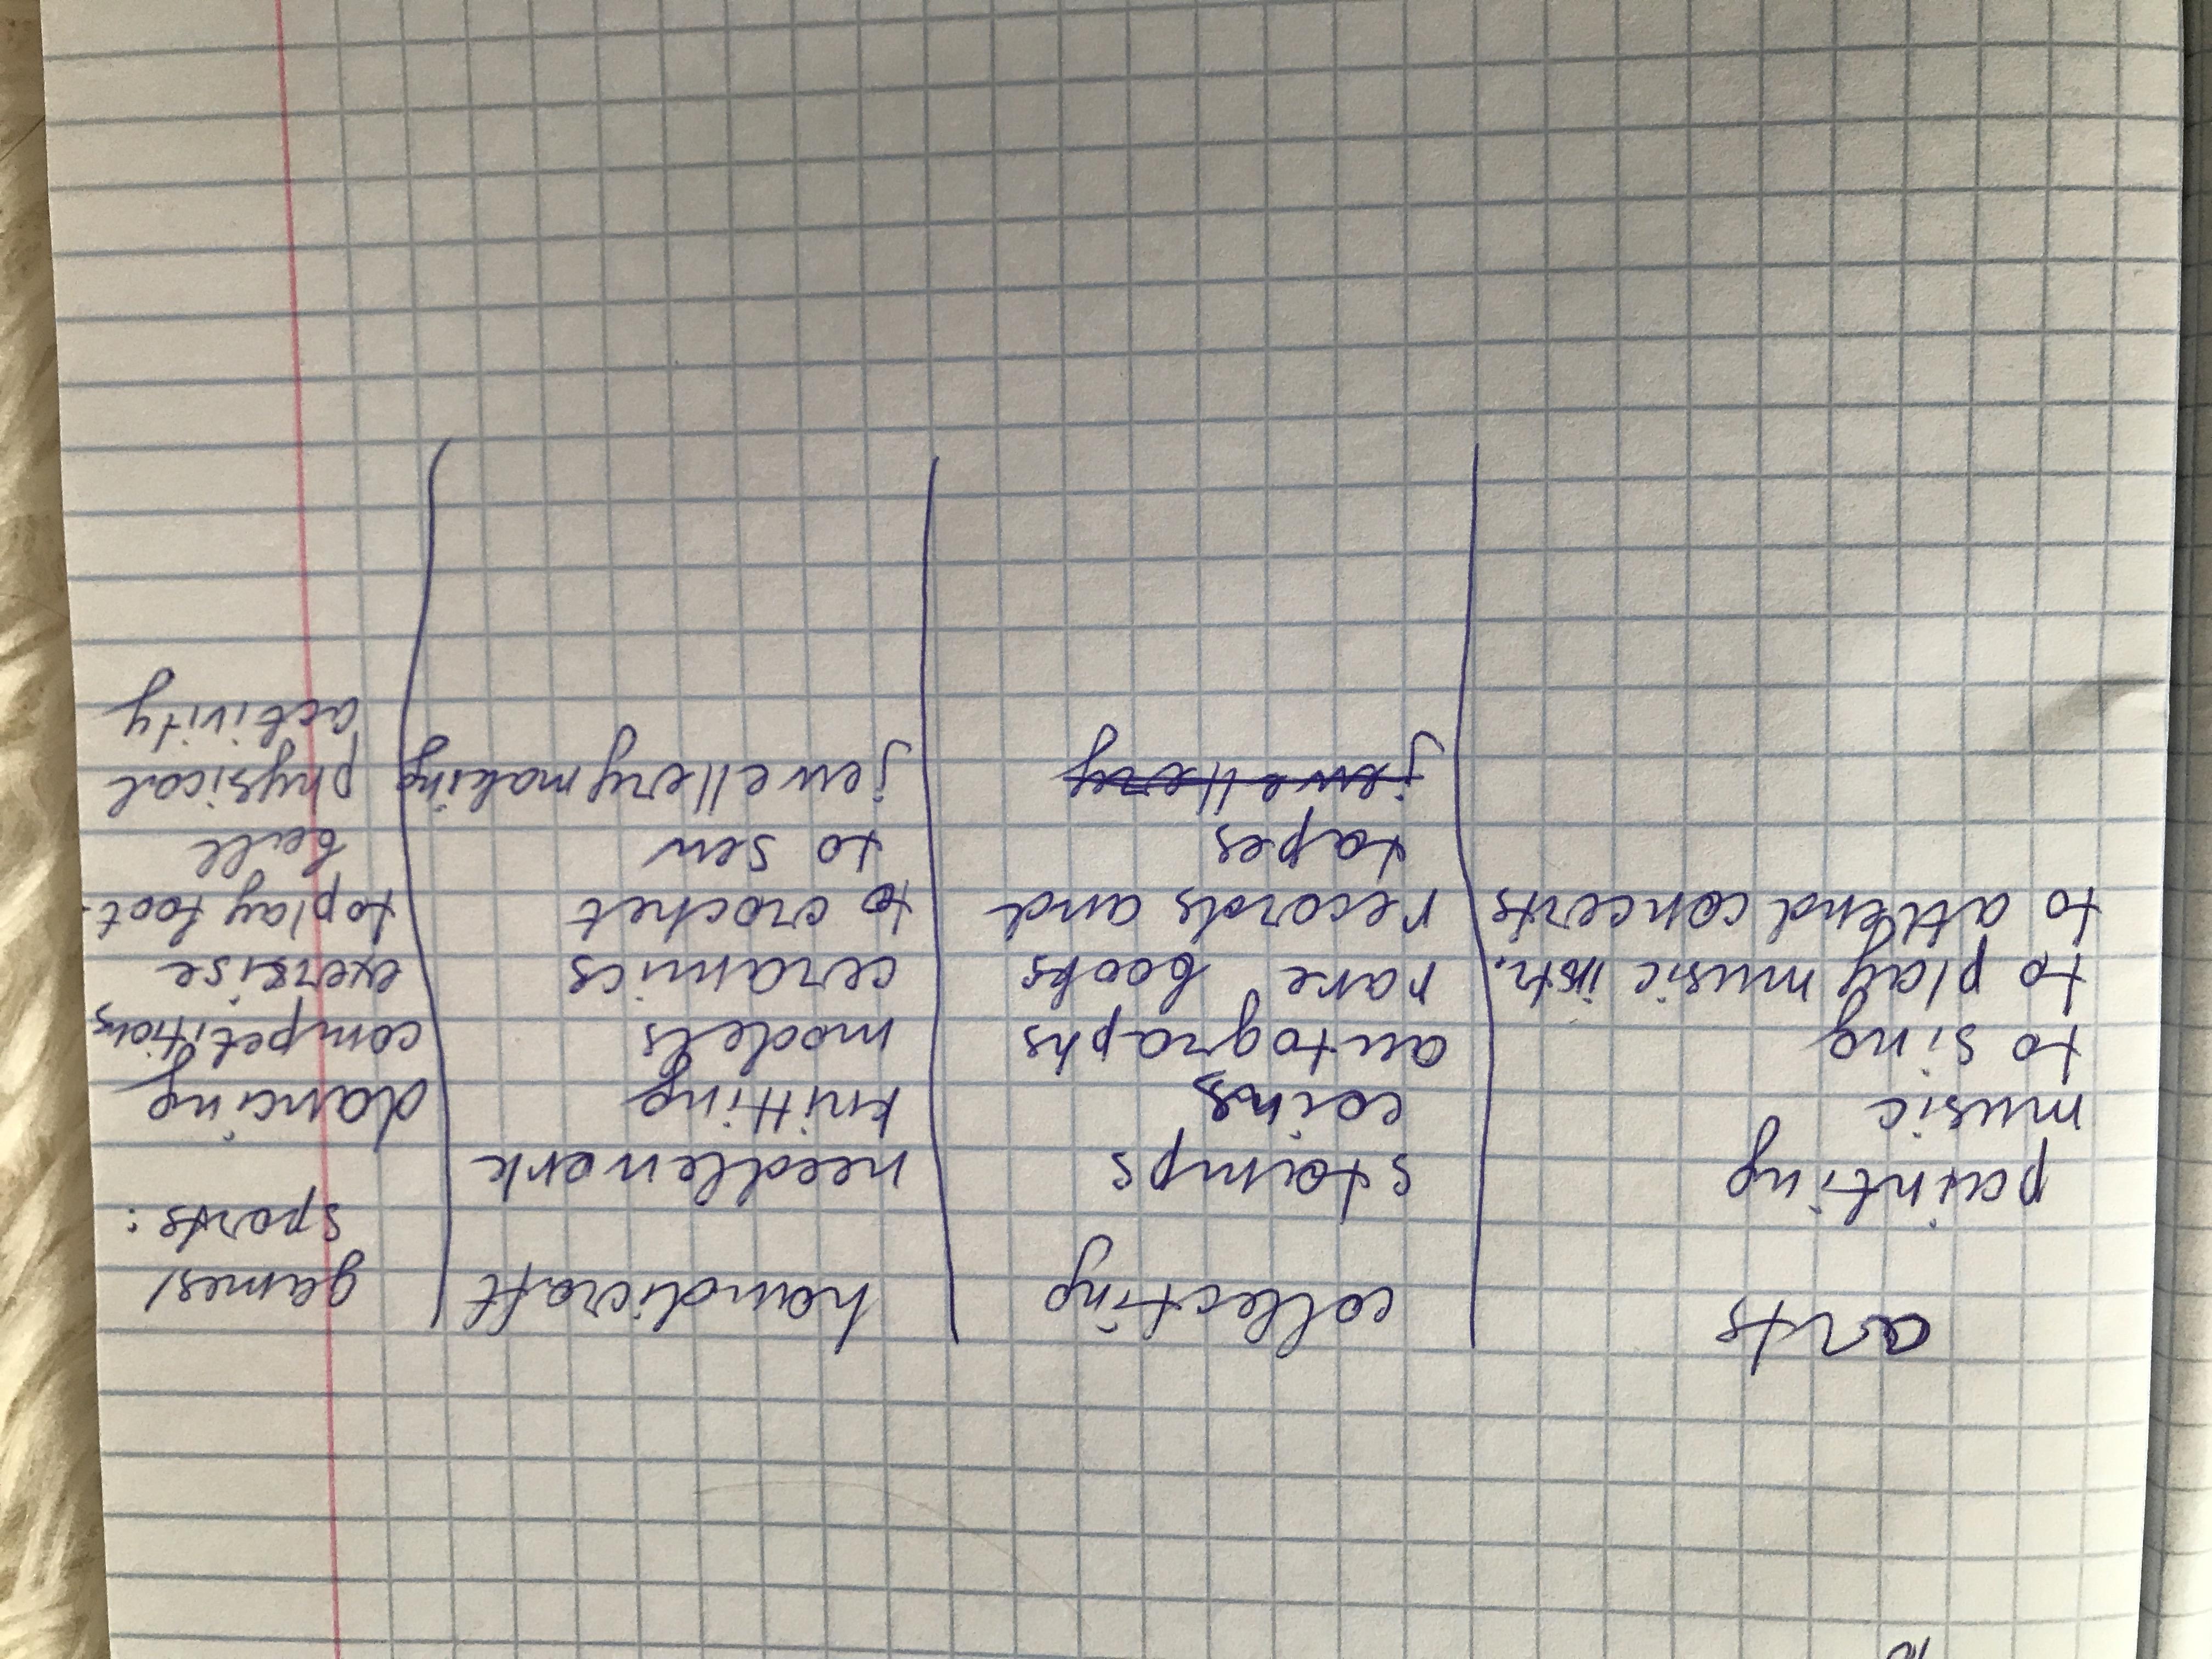 arts
painting
music
to sing
to play music instr.
to attend concerts
collecting
stamps
coins
autographs
rare books
records and
tapes
jewellery
handicraft
needlework
knitting
models
ceramics
to crochet
to sew
jewellery making
games/
sports:
dancing
competitions
exersise
to play foot-
ball
physical
activity